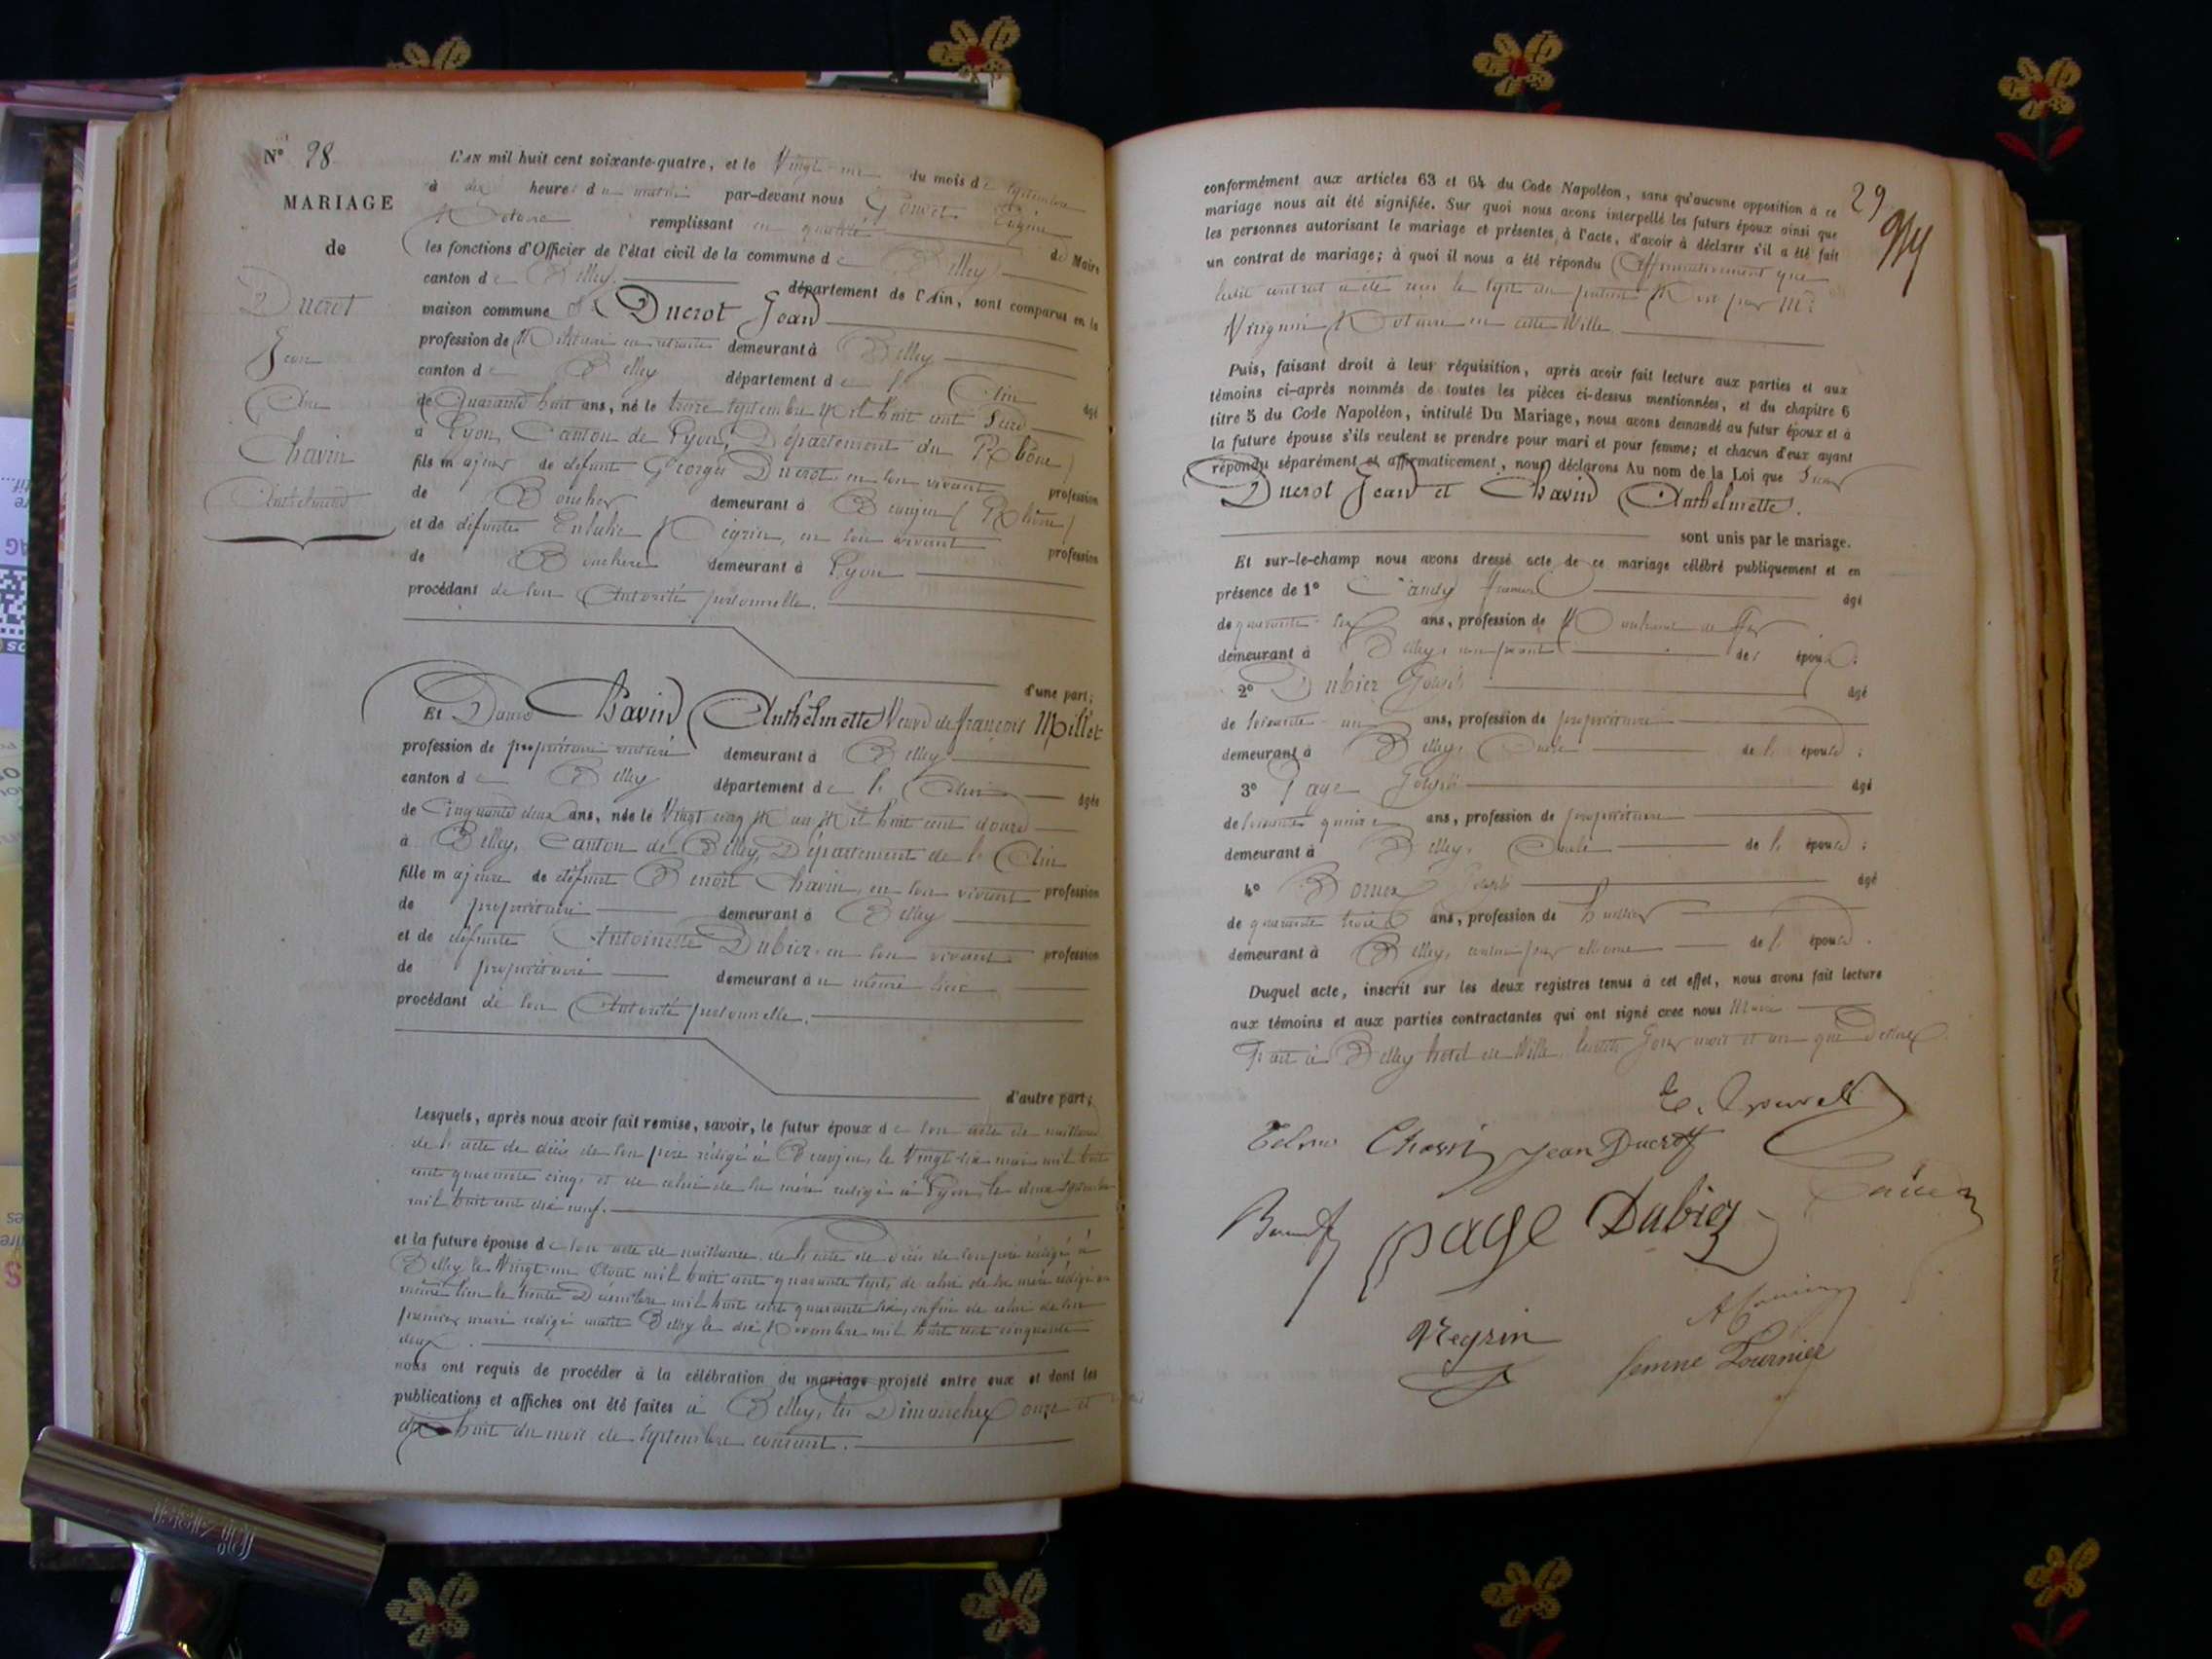 N° 28
MARIAGE
de
Ducrot
Jean
Chavin
Anthelmette
L'AN mil huit cent soixante-quatre, et le Vingt du mois de septembre
à dix heures du matin par-devant nous
Notaire remplissant en qualité de Maire
les fonctions d'Officier de l'état civil de la commune de Belley
canton de Belley département de l'Ain, sont comparus en la
maison commune Sr Ducrot Jean
profession de Militaire en retraite demeurant à Belley
canton de Belley département de l'Ain âgé
de Quarante huit ans, né le treize septembre Mil huit cent Seize
à Lyon, Canton de Lyon, Département du Rhône
fils majeur de défunt Georges Ducrot en son vivant profession
de Boucher demeurant à Beaujeu (Rhône)
et de défunte Eulalie Négrin, en son vivant profession
de Bouchère demeurant à Lyon
procédant de son Autorité personnelle.
d'une part;
Et Dame Chavin Anthelmette Veuve de François Millet
profession de propriétaire demeurant à Belley
canton de Belley département de l'Ain âgée
de Cinquante deux ans, née le Vingt cinq Mil huit cent douze
à Belley, Canton de Belley, Département de l'Ain
fille majeure de défunt Benoît Chavin, en son vivant profession
de propriétaire demeurant à Belley
et de défunte Antoinette Dubier en son vivant profession
de propriétaire demeurant au même lieu
procédant de son Autorité personnelle.
d'autre part;
Lesquels, après nous avoir fait remise, savoir, le futur époux de son acte de naissance
de l'acte de décès de son père rédigé à Beaujeu, le Vingt-six mars mil huit
cent quarante cinq, et de celui de sa mère rédigé à Lyon, le deux septembre
mil huit cent dix neuf.
et la future épouse de son acte de naissance, de l'acte de décès de son père rédigé à
Belley le Vingt un Août mil huit cent quarante sept, de celui de sa mère rédigé au
même lieu le trente Décembre mil huit cent quarante six, enfin de celui de son
premier mari rédigé audit Belley le dix Novembre mil huit cent cinquante
deux.
nous ont requis de procéder à la célébration du mariage projeté entre eux et dont les
publications et affiches ont été faites à Belley, les Dimanches onze et
dix huit du mois de septembre courant.
29
conformément aux articles 63 et 64 du Code Napoléon, sans qu'aucune opposition à ce
mariage nous ait été signifiée. Sur quoi nous avons interpellé les futurs époux ainsi que
les personnes autorisant le mariage et présentes à l'acte, d'avoir à déclarer s'il a été fait
un contrat de mariage; à quoi il nous a été répondu Affirmativement que
ledit contrat a été reçu le sept du présent Mois par Me
Notaire en cette Ville.
Puis, faisant droit à leur réquisition, après avoir fait lecture aux parties et aux
témoins ci-après nommés de toutes les pièces ci-dessus mentionnées, et du chapitre 6
titre 5 du Code Napoléon, intitulé Du Mariage, nous avons demandé au futur époux et à
la future épouse s'ils veulent se prendre pour mari et pour femme; et chacun d'eux ayant
répondu séparément et affirmativement, nous déclarons Au nom de la Loi que Sieur
Ducrot Jean et Chavin Anthelmette.
sont unis par le mariage.
Et sur-le-champ nous avons dressé acte de ce mariage célébré publiquement et en
présence de 1° âgé
de quarante six ans, profession de
demeurant à Belley, non parent de l'époux.
2° Dubier Joseph âgé
de soixante un ans, profession de propriétaire
demeurant à Belley, Oncle de l'épouse;
3° Page Joseph âgé
de soixante quinze ans, profession de propriétaire
demeurant à Belley, Oncle de l'épouse;
4° Joseph âgé
de quarante trois ans, profession de huissier
demeurant à Belley, de l'épouse.
Duquel acte, inscrit sur les deux registres tenus à cet effet, nous avons fait lecture
aux témoins et aux parties contractantes qui ont signé avec nous Maire
Fait à Belley hôtel de Ville, lesdits Jour mois et an que dessus
Chavin Jean Ducrot
page Dubier
Negrin
femme Fournier